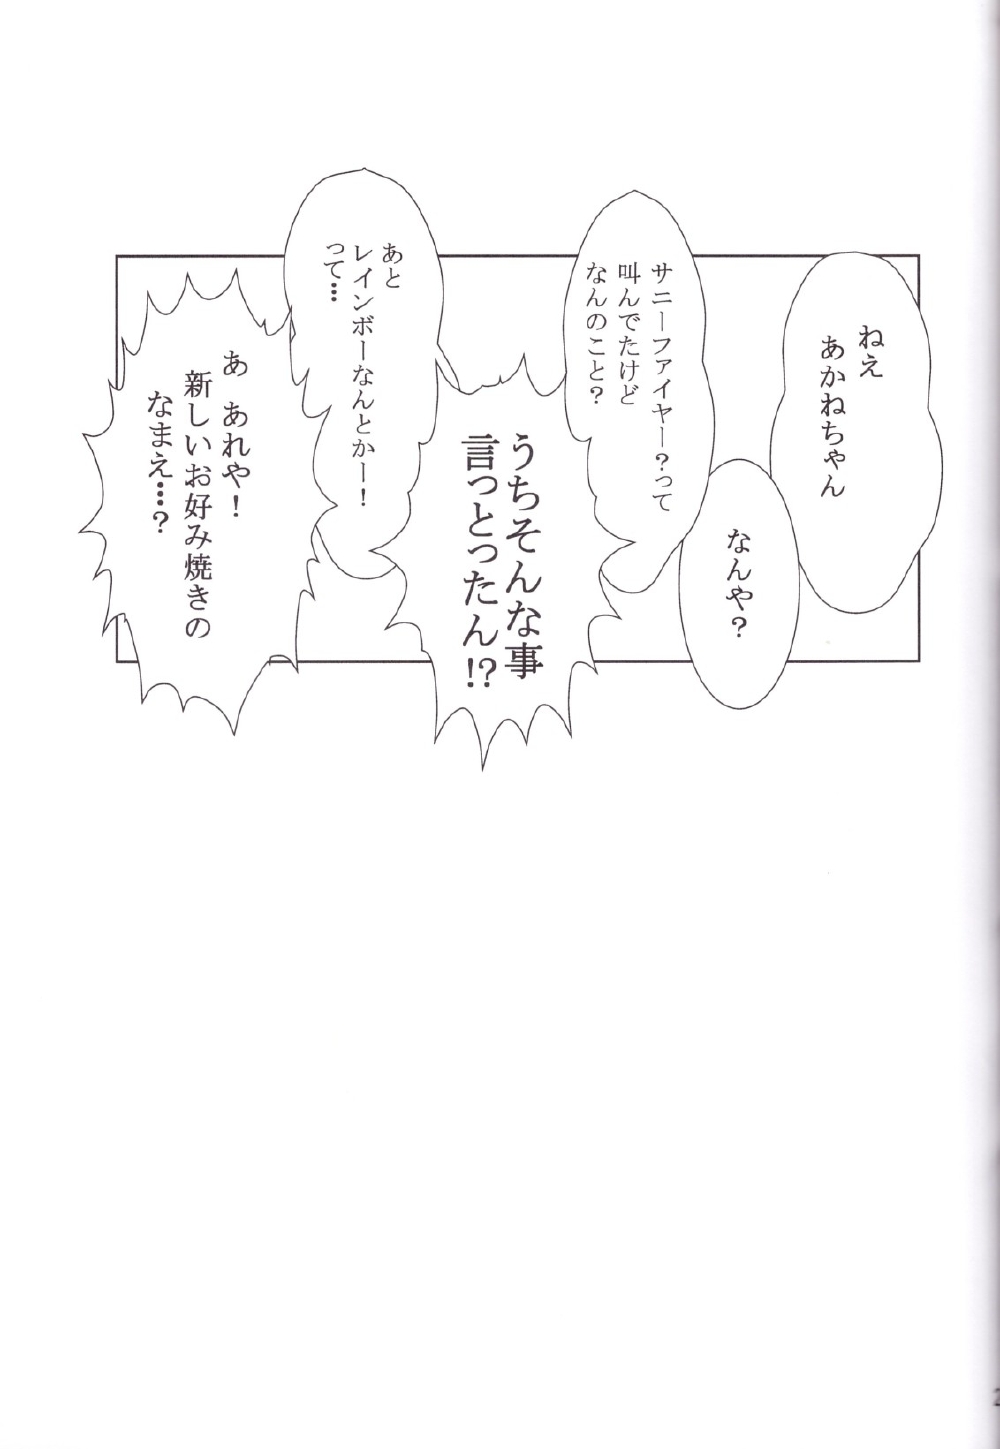 ねえ
あかねちゃん
なんや?
サニーファイヤー?って
叫んでたけど
なんのこと?
うちそんな事
言っとったん!?
あと
レインボーなんとかー!
って…
あ あれや!
新しいお好み焼きの
なまえ…?